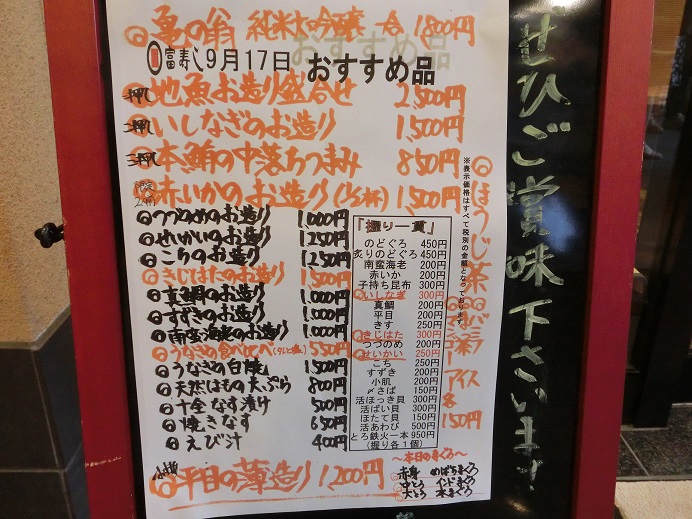 亀の翁 純米大吟醸 一合 1,800円
富寿し 9月17日 おすすめ品
一押し 地魚お造り盛合せ 2,500円
二押し いしなぎのお造り 1,500円
三押し 本鮪の中落ちつまみ 850円
赤いかのお造り(1/2杯) 1,500円
つつめのお造り 1,000円
せいかいのお造り 1,250円
こちのお造り 1,250円
きじはたのお造り 1,500円
真鯛のお造り 1,000円
すずきのお造り 1,000円
南蛮海老のお造り 1,000円
うなぎの食べ比べ 550円
うなぎの白焼 1,500円
天然はもの天ぷら 800円
十全なす漬け 500円
焼きなす 650円
えび汁 400円
平目の薄造り 1,200円
「握り一貫」
のどぐろ 450円
炙りのどぐろ 450円
南蛮海老 200円
赤いか 200円
子持ち昆布 300円
いしなぎ 300円
真鯛 200円
平目 200円
きす 250円
きじはた 300円
つつのめ 200円
せいかい 250円
こち 200円
すずき 200円
小肌 200円
〆さば 150円
活ほっき貝 300円
活ばい貝 300円
ほたて貝 150円
活あわび 500円
とろ鉄火一本 950円
(握り各1個)
~本日のまぐろ~
赤身 めばちまぐろ
中とろ インドまぐろ
大とろ 本まぐろ
※表示価格はすべて税別の金額となっております。
ほうじ茶
バニラ
アイス
各
150円
ぜひご賞味下さいます!